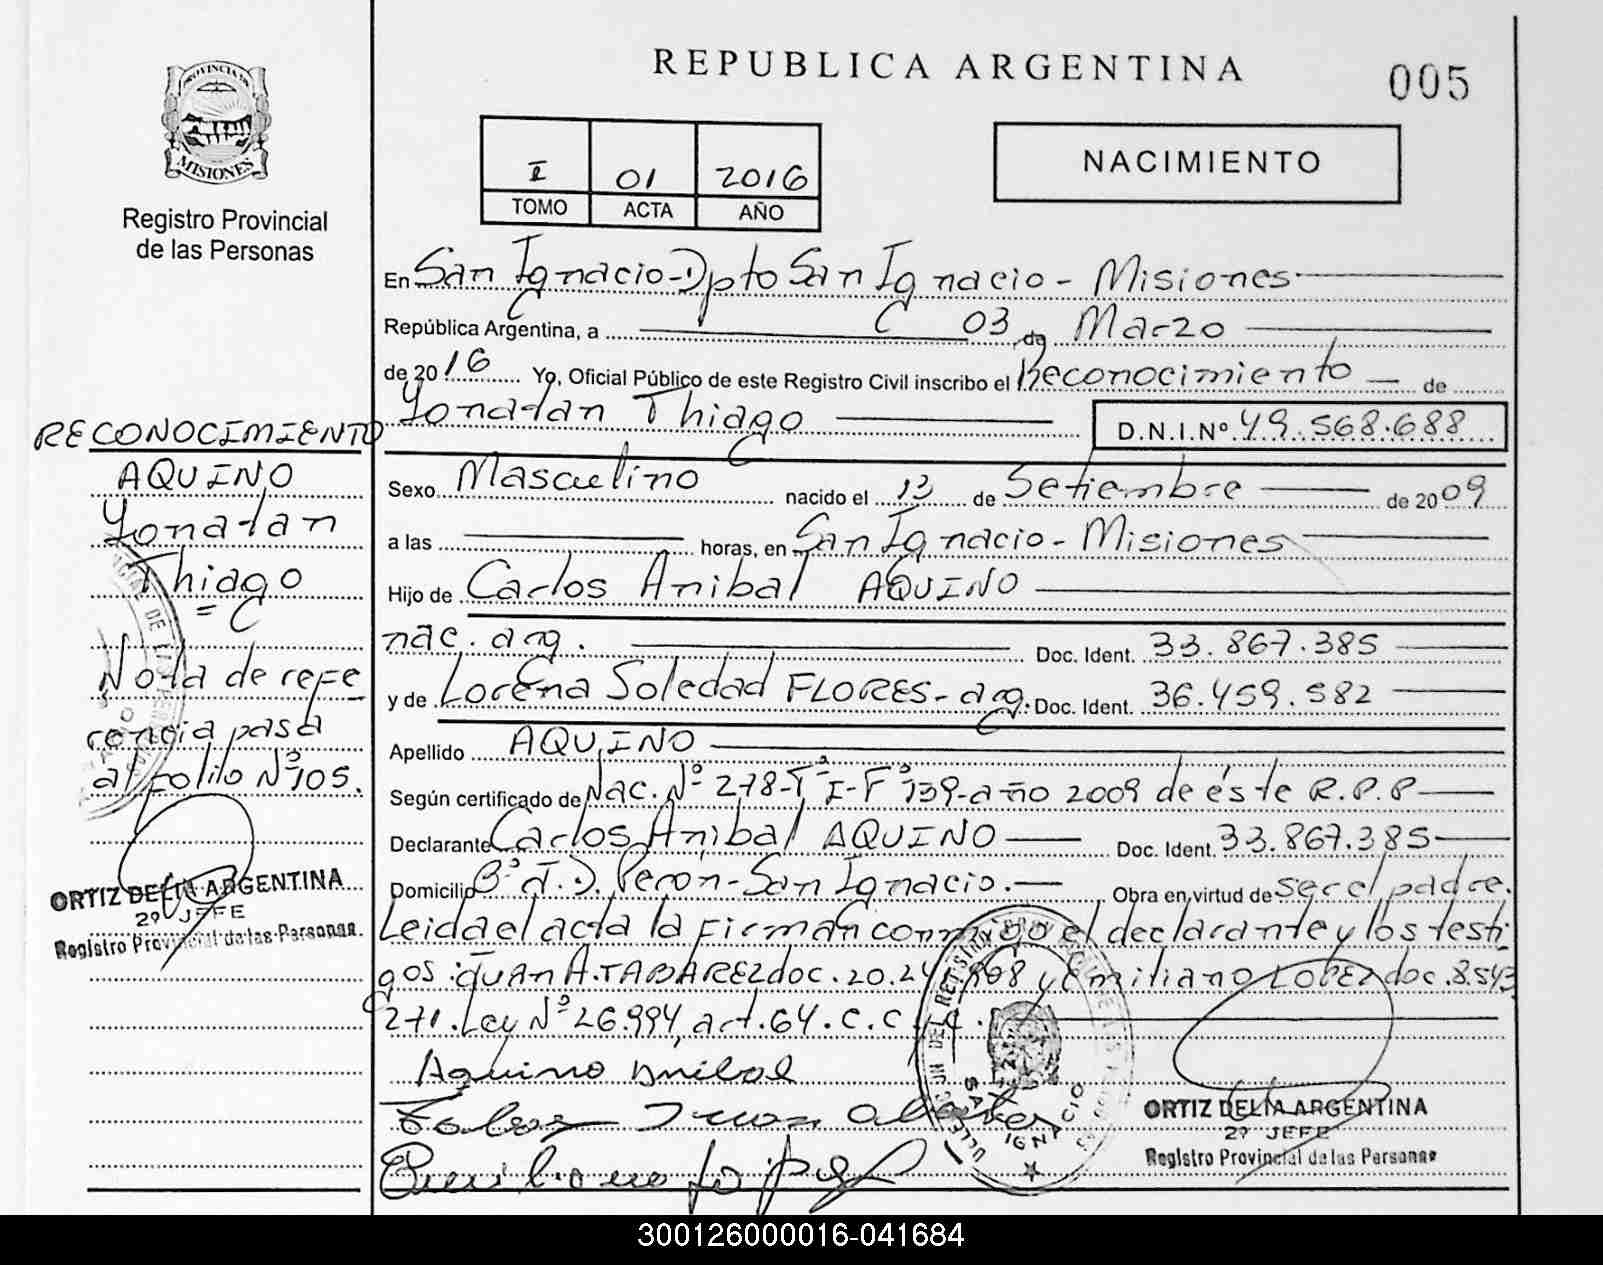 REPUBLICA ARGENTINA
005
PROVINCIA DE
MISIONES
Registro Provincial
de las Personas
I 01 2016
TOMO ACTA AÑO
NACIMIENTO
En San Ignacio-Dpto San Ignacio - Misiones
República Argentina, a 03 de Marzo
de 2016 Yo, Oficial Público de este Registro Civil inscribo el Reconocimiento de
Yonatan Thiago
D.N.I.Nº 49.568.688
Sexo Masculino nacido el 13 de Setiembre de 2009
a las horas, en San Ignacio - Misiones
Hijo de Carlos Anibal AQUINO
nac. arg. Doc. Ident. 33.867.385
y de Lorena Soledad FLORES- arg. Doc. Ident. 36.459.582
Apellido AQUINO
Según certificado de Nac. Nº 278-Tº I-Fº 139-año 2009 de éste R.P.P
Declarante Carlos Anibal AQUINO Doc. Ident. 33.867.385
Domicilio Bº J.D. Perón-San Ignacio. Obra en virtud de ser el padre.
Leida el acta la firman conmigo el declarante y los testi
gos: JUAN A. TABAREZ doc. 20.24 .908 y Emiliano LOPEZ doc. 8.543
271. Ley Nº 26.994 art. 64. C.C.
Aquino Anibal
RECONOCIMIENTO
AQUINO
Yonatan
Thiago
Nota de refe
rencia pasa
al folio Nº 105.
ORTIZ DELIA ARGENTINA
2º JEFE
Registro Provincial de las Personas
SAN IGNACIO
ORTIZ DELIA ARGENTINA
2º JEFE
Registro Provincial de las Personas
300126000016-041684